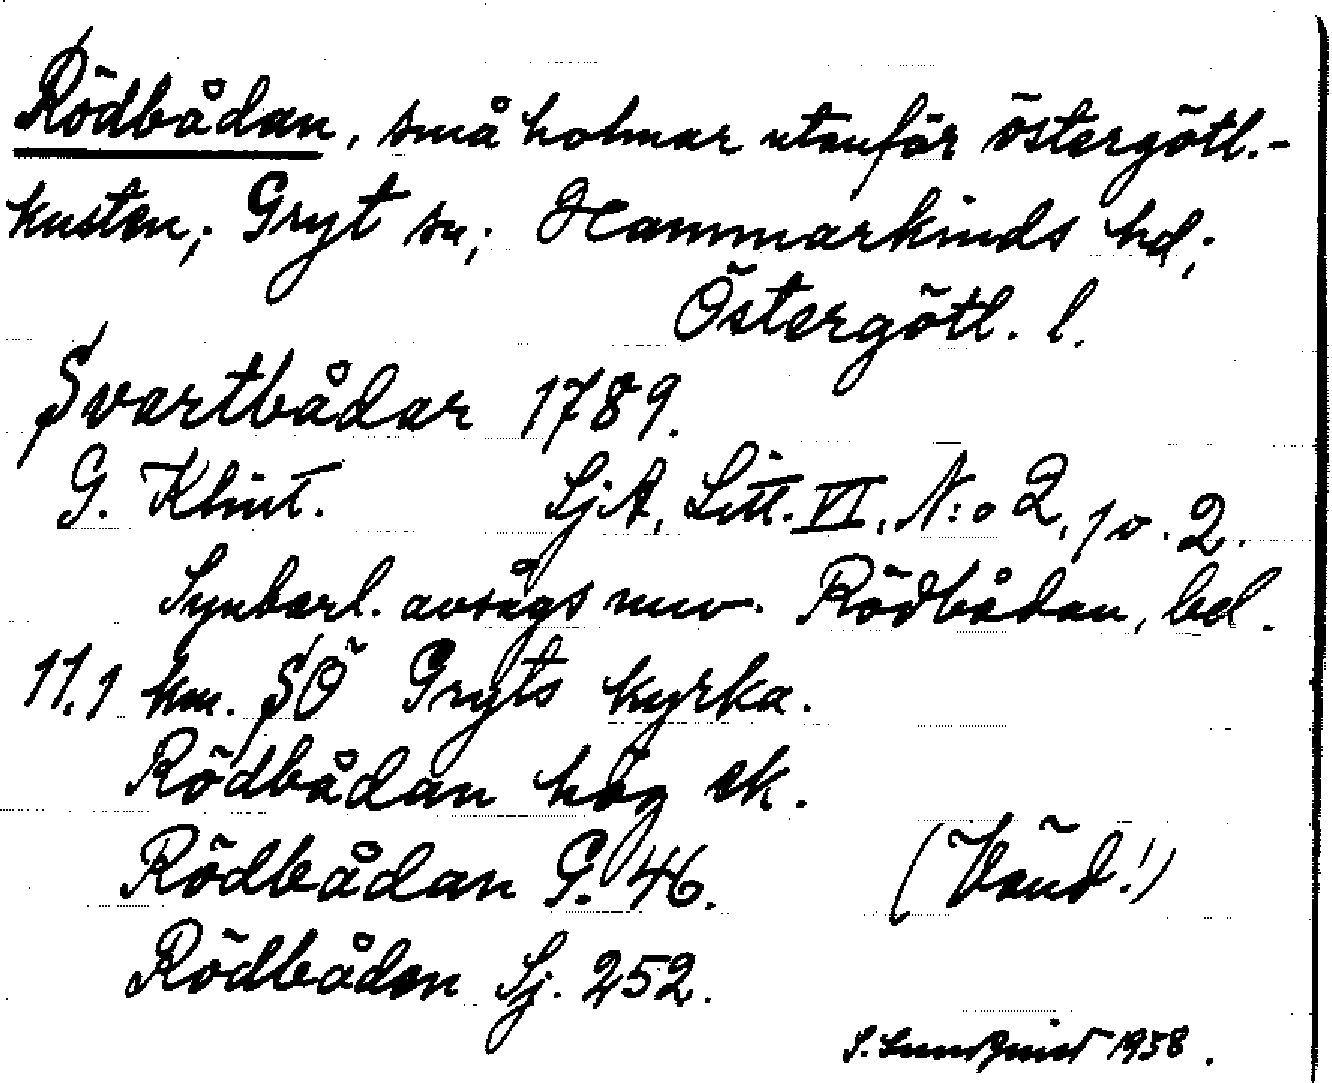 Rödbådan, små holmar utanför östergötl.-
kusten; Gryt sn; Hammarkinds hd;
Östergötl. l.
Svartbådar 1789.
G. Klint. SjA, Litt. VI, N:o 2, p. 2.
Synbarl. avsågs nuv. Rödbådan, bel.
11.1 km. SÖ Gryts kyrka.
Rödbådan hög ek.
Rödbådan G. 46. (Vänd!)
Rödbådan Sj. 252.
S. Lundquist 1938.